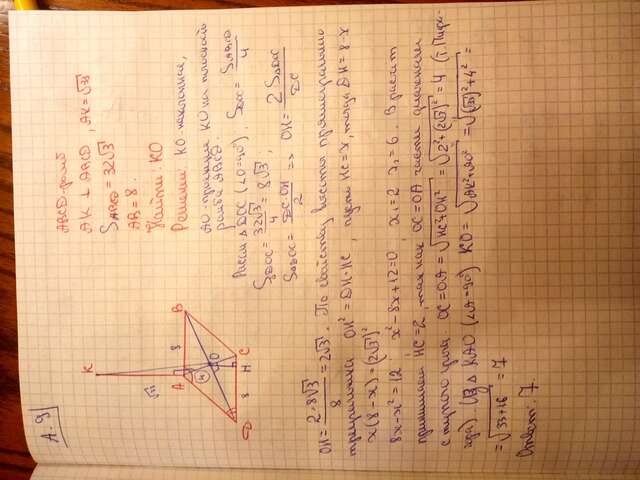 А-9
ABCD-ромб
AK ⊥ ABCD, AK=√33
S ABCD = 32√3
AB = 8.
Найти: KO
Решение: KO-наклонная,
AO-проекция KO на плоскость
ромба ABCD.
Рассм. Δ DOC (∠O=90°), S DOC = S ABCD / 4
S DOC = 32√3 / 4 = 8√3,
S DOC = DC·OH / 2 => OH = 2 S DOC / DC
OH = 2·8√3 / 8 = 2√3. По свойству высоты прямоугольного
треугольника OH² = DH·HC, пусть HC=x, тогда DH = 8-x
x(8-x) = (2√3)²
8x-x² = 12 x²-8x+12=0, x₁=2 x₂=6. В расчёт
принимаем HC=2, так как OC=OA части диагонали
с тупого угла. OC=OA = √HC²+OH² = √2²+(2√3)² = 4 (т. Пифа-
гора). Из Δ KAO (∠A=90°) KO = √AK²+AO² = √(√33)²+4² =
= √33+16 = 7
Ответ: 7.
K
√33
A
8
B
4
O
D
8
H
C